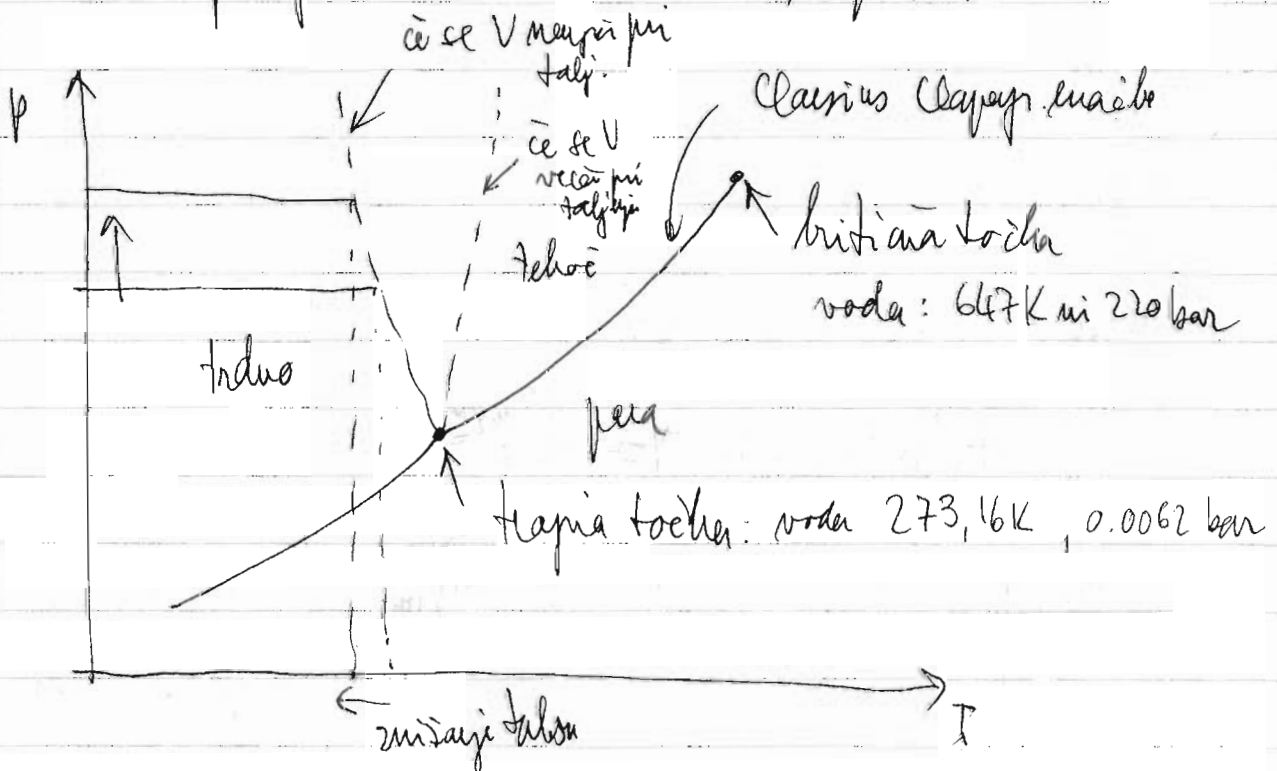 če se V manjša pri
talj.
P
Clausius Clapeyr. enačba
če se V
veča pri
taljenju
tekoč
kritična točka
voda: 647K in 220 bar
trdno
para
trojna točka: voda 273,16K, 0.0062 bar
T
znižanje tališa